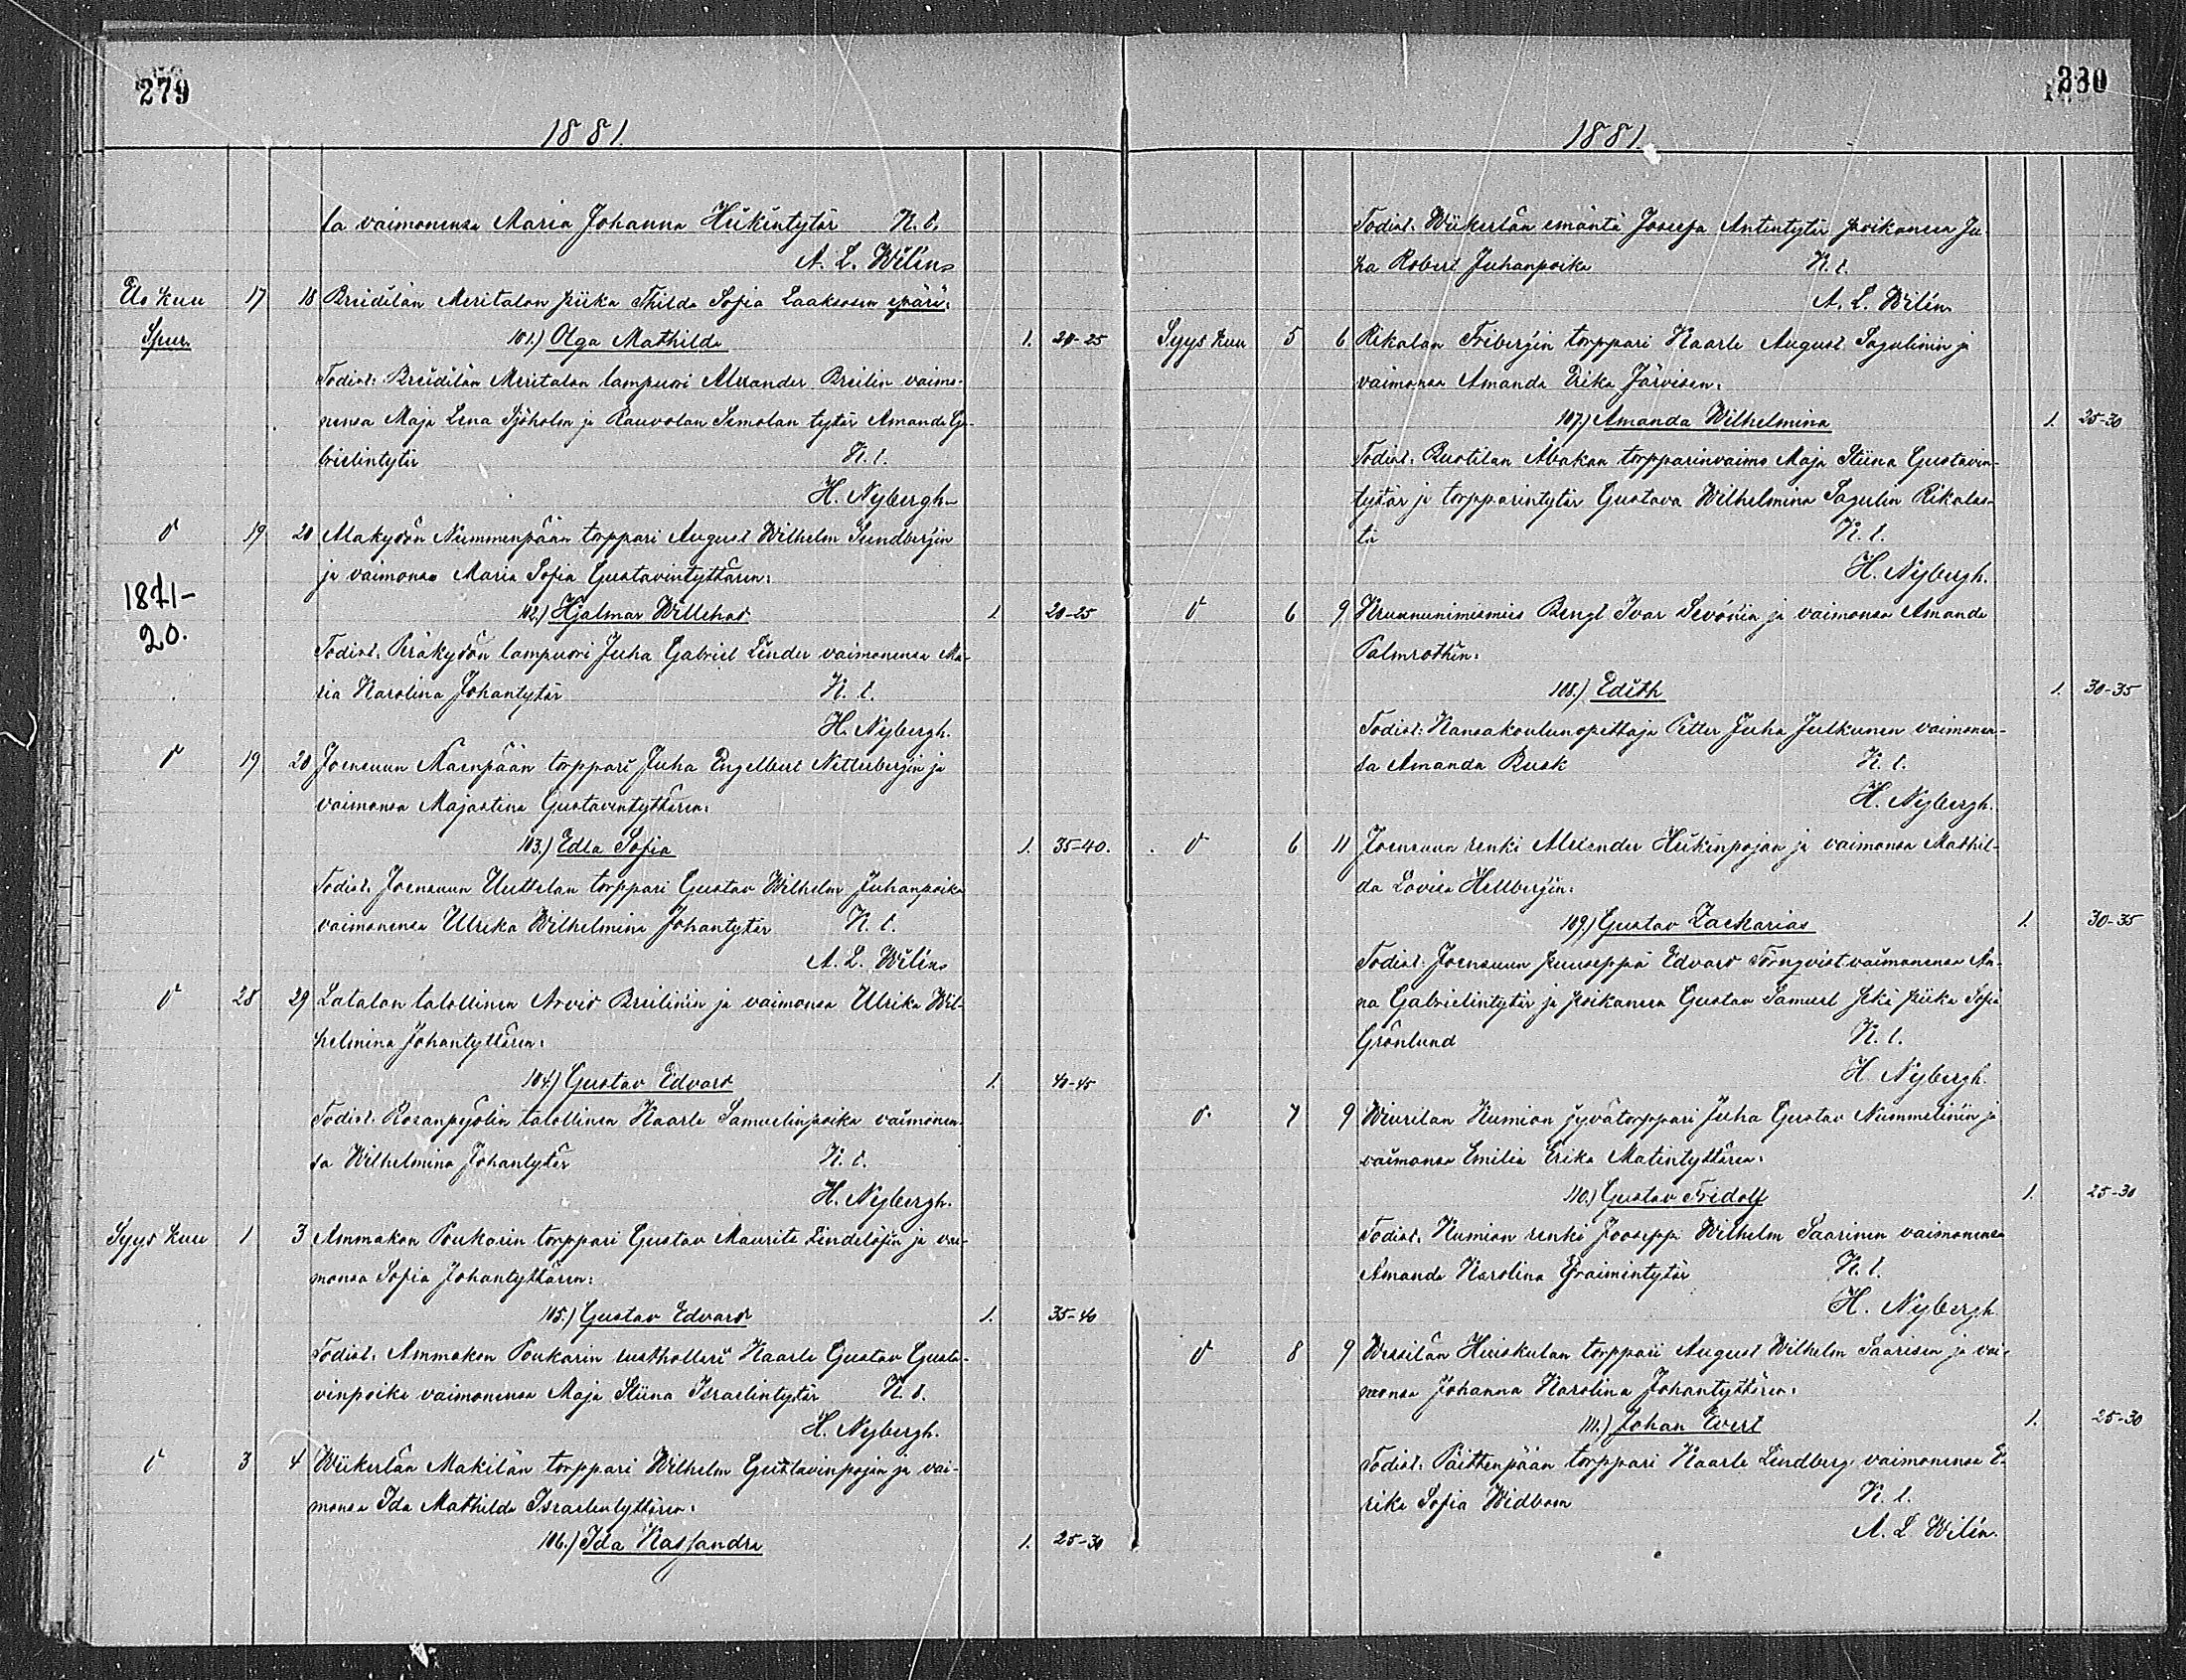 279
1881.
sa vaimonensa Maria Johanna Heikintytär K. l.
A. L. Wilén
Elo kuu 17 18 Breidilän Meritalon piika Thilda Sofia Laaksosen epäri:
Spur. 101.) Olga Mathilda 1. 20-25
Todist: Breidilän Meritalon lampuori Alexander Breilin vaimo-
nensa Maja Lena Sjöholm ja Rauvolan Simolan tytär Amanda Ga-
brielintytär K. l.
H. Nybergh
" 19 20 Makyrön Nummenpään torppari August Wilhelm Sundbergin
ja vaimonsa Maria Sofia Gustavintyttären:
1871-
20.
102.) Hjalmar Willehad 1. 20-25
Todist: Peräkylän lampuori Juha Gabriel Linder vaimonensa Ma-
ria Karolina Johantytär K. l.
H. Nybergh.
" 19 20 Joensuun Kaenpään torppari Juha Engelbert Netterbergin ja
vaimonsa Majastina Gustavintyttären:
103.) Edla Sofia 1. 35-40.
Todist. Joensuun Uuttelan torppari Gustav Wilhelm Juhanpoika
vaimonensa Ulrika Wilhelmina Johantytär K. l.
A. L. Wilén
" 28 29 Latalan talollinen Arvid Breilinin ja vaimonsa Ulrika Wil-
helmina Johantyttären:
104.) Gustav Edvard 1. 40-45
Todist. Rosanpyölin talollinen Kaarle Samuelinpoika vaimonen-
sa Wilhelmina Johantytär K. l.
H. Nybergh.
Syys kuu 1 3 Ammakon Poukarin torppari Gustav Maurits Lindelöfin ja vai-
monsa Sofia Johantyttären:
105.) Gustav Edvard 1. 35-40
Todist. Ammakon Poukarin rusthollari Kaarle Gustav Gusta-
vinpoika vaimonensa Maja Stiina Israelintytär K. l.
H. Nybergh.
" 3 4 Wiikerlän Makilän torppari Wilhelm Gustavinpojan ja vai-
monsa Ida Mathilda Israelintyttären:
106.) Ida Kassandra 1. 25-30
280
1881.
Todist. Wiikerlän emäntä Josefa Antintytär poikanensa Ju-
ha Robert Juhanpoika K. l.
A. L. Wilén
Syys kuu 5 6 Rikalan Fribergin torppari Kaarle August Sagulinin ja
vaimonsa Amanda Erika Järvisen:
107.) Amanda Wilhelmina 1. 25-30
Todist. Ruotilan Åbakan torpparinvaimo Maja Stiina Gustavin-
tytär ja torpparintytär Gustava Wilhelmina Sagulin Rikalas-
ta K. l.
H. Nybergh.
" 6 9 Kruununimismies Bengt Ivar Sevónin ja vaimonsa Amanda
Palmrothin:
108.) Edith 1. 30-35
Todist: Kansakoulunopettaja Petter Juha Julkunen vaimonen-
sa Amanda Busk K. l.
H. Nybergh.
" 6 11 Joensuun renki Alexander Heikinpojan ja vaimonsa Mathil-
da Lovisa Hellbergin:
109.) Gustav Zackarias 1. 30-35
Todist. Joensuun puuseppä Edvard Törnqvist vaimonensa An-
na Gabrielintytär ja poikamies Gustav Samuel sekä piika Sofia
Grönlund K. l.
H. Nybergh.
" 7 9 Wiurilan Kumion jyvätorppari Juha Gustav Nummelinin ja
vaimonsa Emilia Erika Matintyttären:
110.) Gustav Fridolf 1. 25-30
Todist. Kumion renki Jooseppi Wilhelm Saarinen vaimonensa
Amanda Karolina Efraimintytär K. l.
H. Nybergh
" 8 9 Wessilän Huiskulan torppari August Wilhelm Saarisen ja vai-
monsa Johanna Karolina Johantyttären:
111.) Johan Evert 1. 25-30
Todist: Paittenpään torppari Kaarle Lindberg vaimonensa E-
rika Sofia Widbom K. l.
A. L. Wilén.